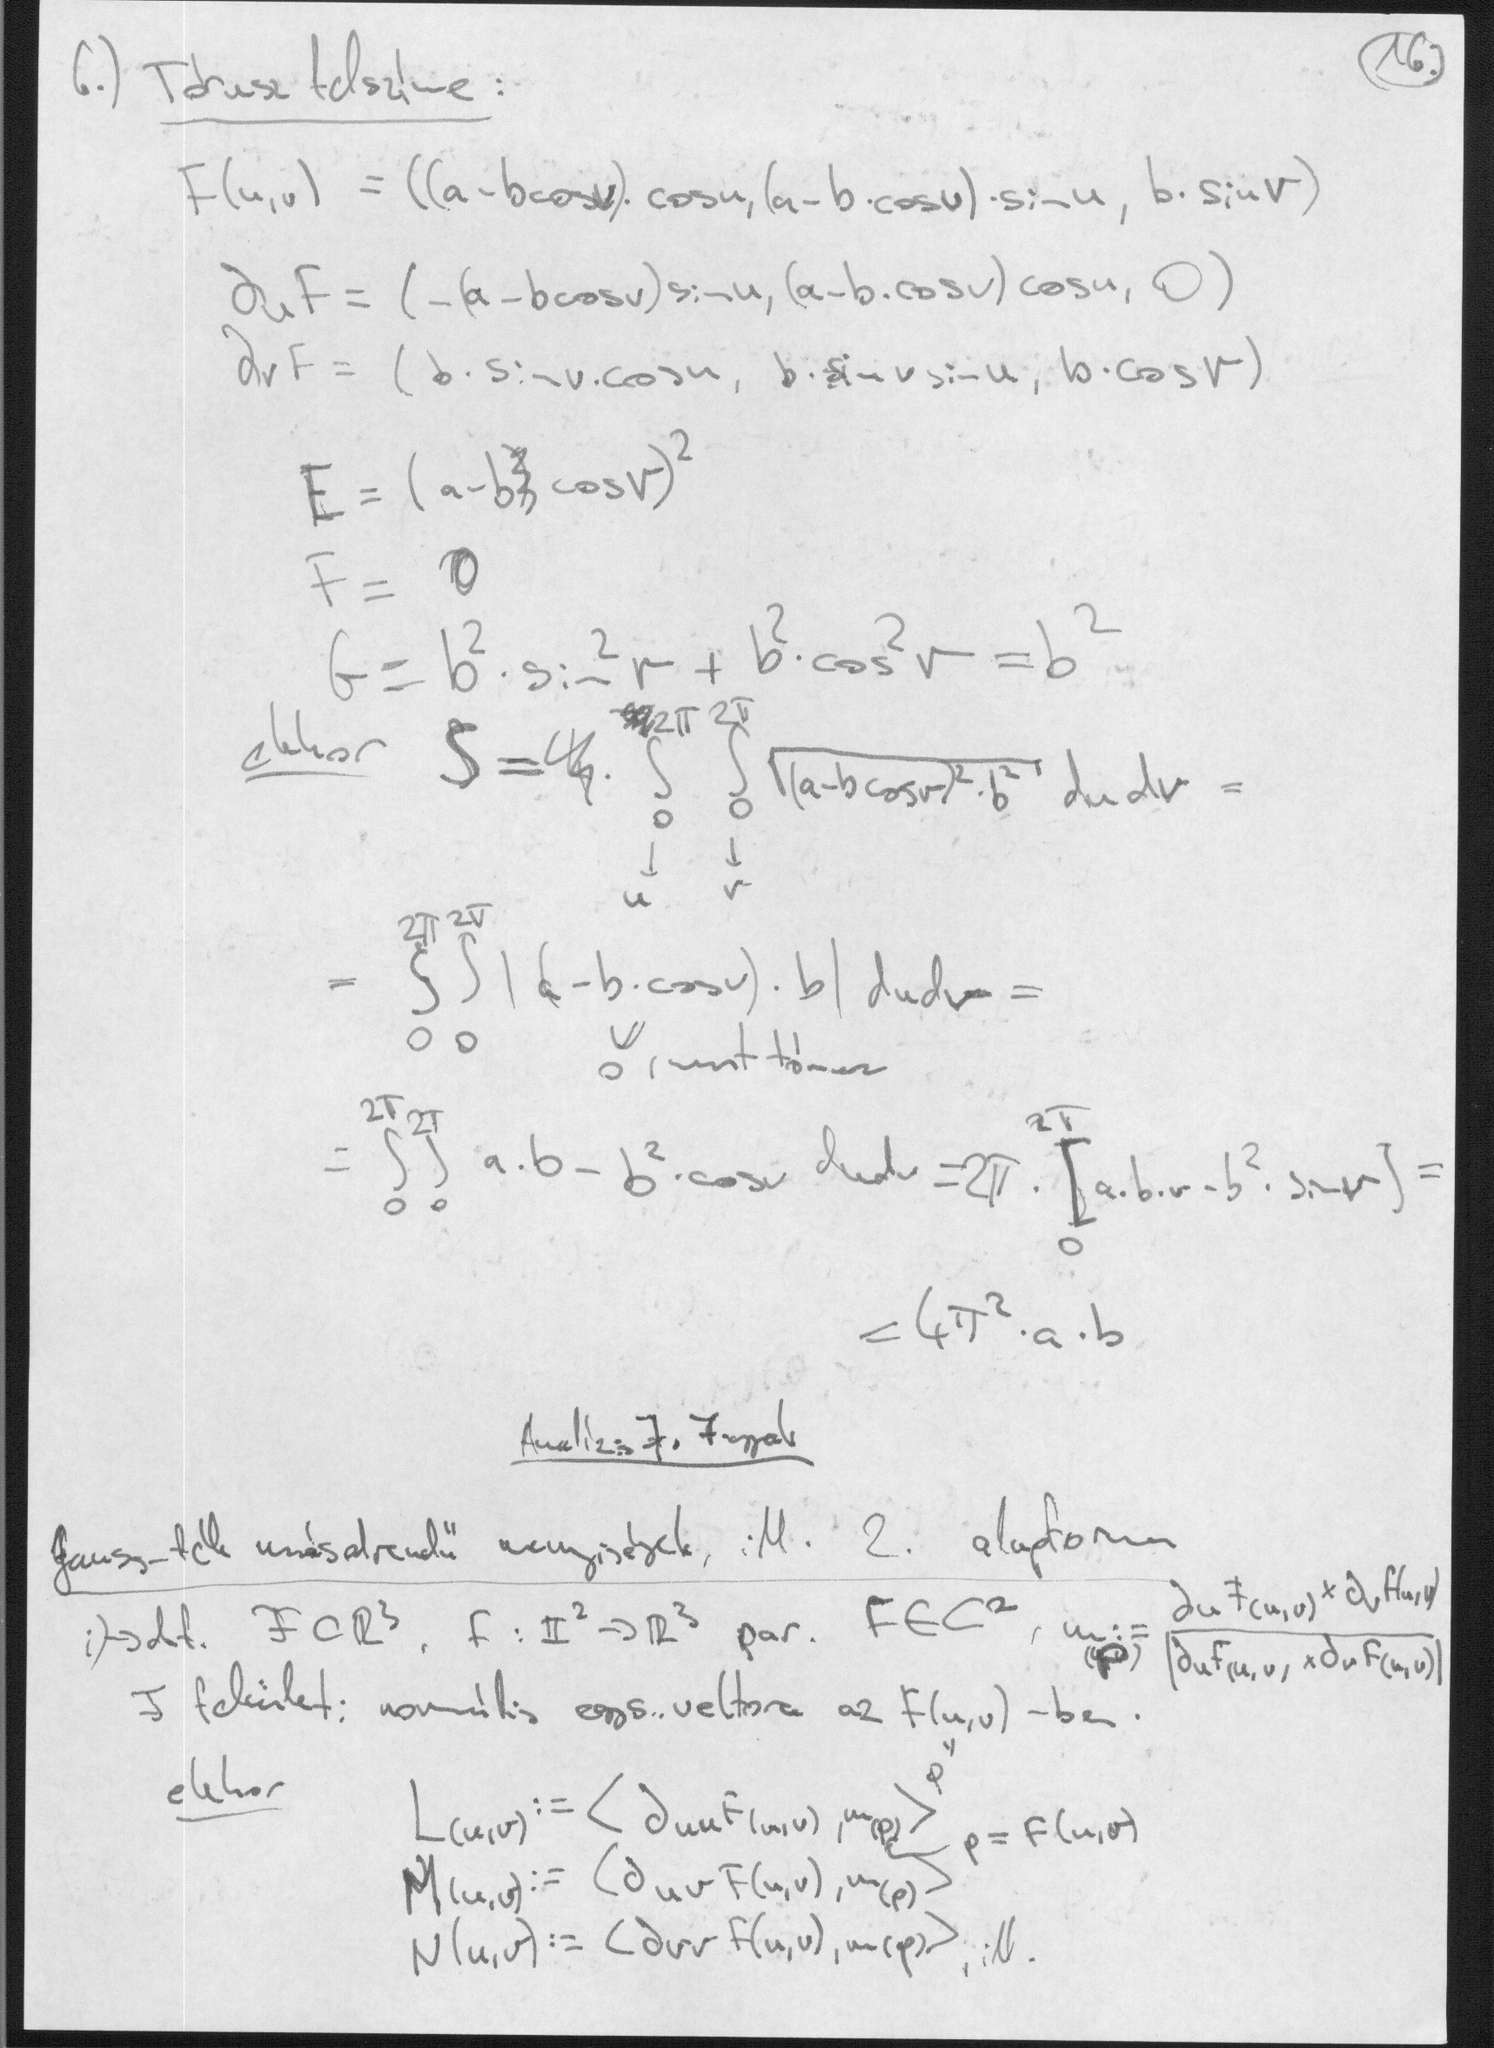 16.)
6.) Tórusz felszíne:
F(u,v) = ((a-bcosv)·cosu, (a-b·cosv)·sinu, b·sinv)
∂uF = (-(a-bcosv)sinu, (a-b·cosv)cosu, 0)
∂vF = (b·sinv·cosu, b·sinvsinu, b·cosv)
E = (a-b cosv)²
F = 0
G = b²·sin²v + b²·cos²v = b²
ekkor S = ∫₀^2π ∫₀^2π √((a-bcosv)²·b²) dudv =
↓ ↓
u v
= ∫₀^2π ∫₀^2π |(a-b·cosv)·b| dudv =
0, mert tórusz
= ∫₀^2π ∫₀^2π a·b-b²·cosv dudv = 2π·[a·b·v-b²·sinv]₀^2π =
= 4π²·a·b
Analízis 7.
Gauss-féle másodrendű mennyiségek, ill. 2. alapforma
i) def. F⊂ℝ³, F: II²→ℝ³ par. F∈C², m(p) := ∂uF(u,v)×∂vF(u,v) / |∂uF(u,v)×∂vF(u,v)|
F felület: normális egys. vektora az F(u,v)-ben.
p
ekkor L(u,v) := <∂uuF(u,v), m(p)> p = F(u,v)
M(u,v) := <∂uvF(u,v), m(p)>
N(u,v) := <∂vvF(u,v), m(p)>, ill.